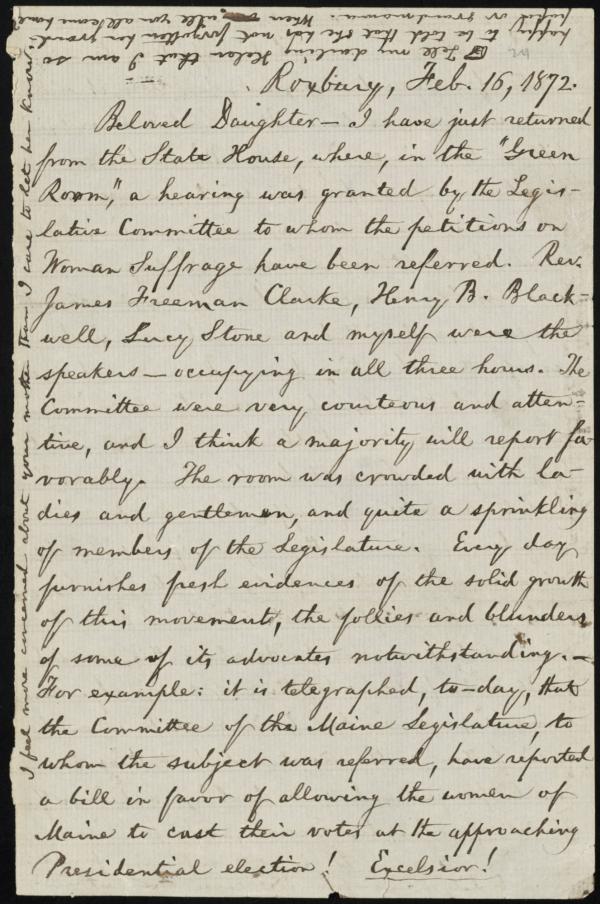 Roxbury, Feb. 16, 1872.
Beloved Daughter— I have just returned
from the State House, where, in the "Green
Room," a hearing was granted by the Legis-
lative Committee to whom the petitions on
Woman Suffrage have been referred. Rev.
James Freeman Clarke, Henry B. Black-
well, Lucy Stone and myself were the
speakers — occupying in all three hours. The
Committee were very courteous and atten-
tive, and I think a majority will report fa-
vorably. The room was crowded with la-
dies and gentlemen, and quite a sprinkling
of members of the Legislature. Every day
furnishes fresh evidences of the solid growth
of this movement, the follies and blunders
of some of its advocates notwithstanding. —
For example: it is telegraphed, to-day, that
the Committee of the Maine Legislature, to
whom the subject was referred, have reported
a bill in favor of allowing the women of
Maine to cast their votes at the approaching
Presidential election! Excelsior!
I feel more concerned about your mother than I care to let her know.
Tell my darling Helen that I am so
happy to be told that she has not forgotten her grand-
papa or grandmama. When will you all come home